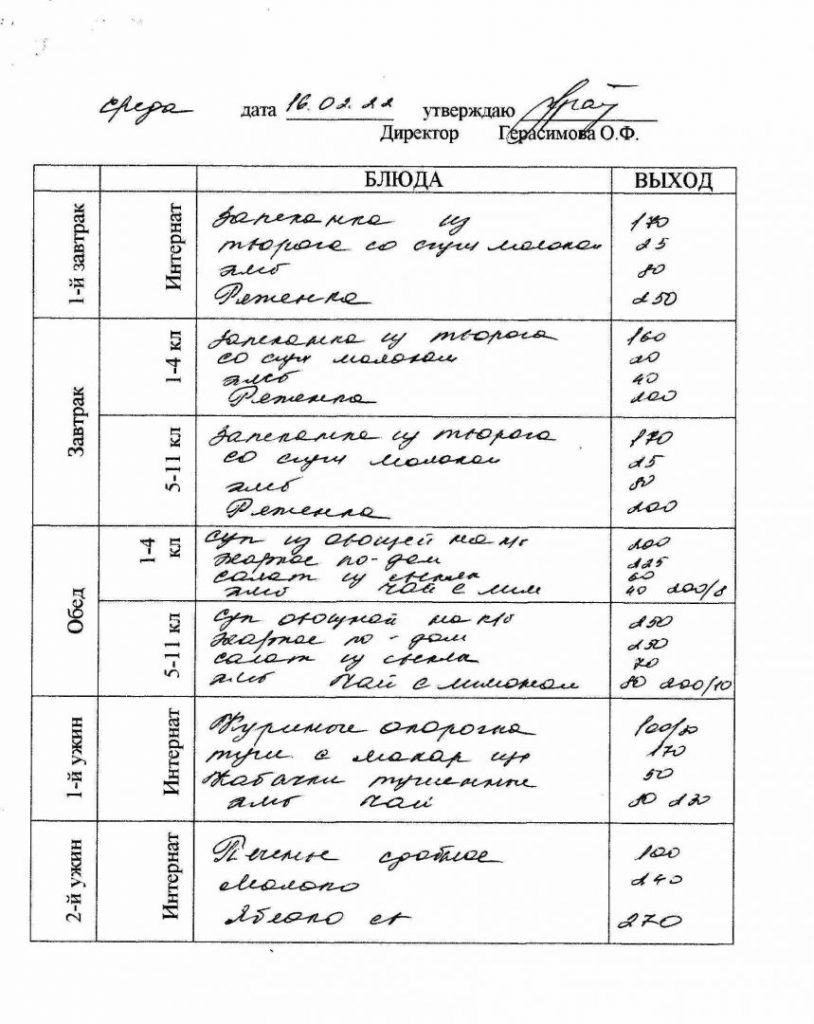 среда дата 16.02.22 утверждаю
Директор Герасимова О.Ф.
БЛЮДА ВЫХОД
1-й завтрак Интернат
Запеканка из 170
творога со сгущ молоком 25
хлеб 80
Ряженка 250
Завтрак
1-4 кл
Запеканка из творога 160
со сгущ молоком 20
хлеб 40
Ряженка 200
5-11 кл
Запеканка из творога 170
со сгущ молоком 25
хлеб 80
Ряженка 200
Обед
1-4 кл
Суп из овощей на к/б 200
Жаркое по-дом 225
салат из свекла 60
хлеб чай с лим 40 200/8
5-11 кл
Суп овощной на к/б 250
Жаркое по-дом 250
салат из свекла 70
хлеб чай с лимоном 80 200/10
1-й ужин Интернат
Куриные окорочка
туш с макар 170
Кабачки тушенные 50
хлеб чай 80 230
2-й ужин Интернат
Печенье сдобное 100
Молоко 240
Яблоко св 270